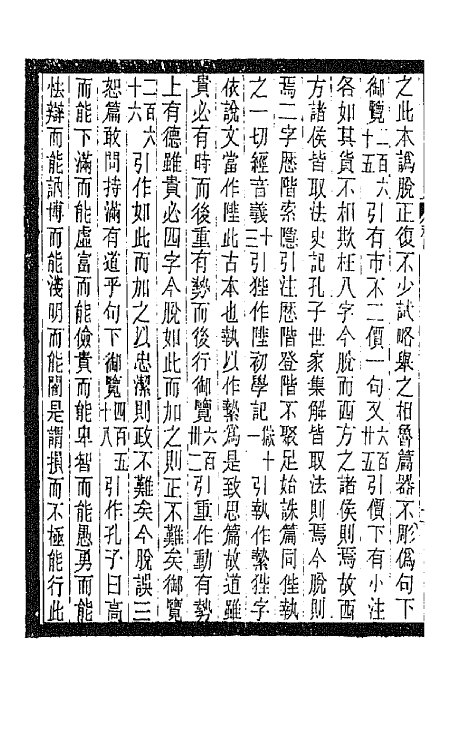 之此本譌脫正復不少試略舉之相魯篇器不彫僞句下
御覽二百六十五引有市不二價一句又六百卅五引價下有小注
各如其貨不相欺枉八字今脫而西方之諸侯則焉故西
方諸侯皆取法史記孔子世家集解皆取法則焉今脫則
焉二字歷階索隱引注歷階登階不聚足始誅篇同狴執
之一切經音義十三引狴作陛初學記二十引執作縶狴字
依說文當作陛此古本也執以作縶爲是致思篇故道雖
貴必有時而後重有勢而後行御覽六百卅二引重作動有勢
上有德雖貴必四字今脫如此而加之則正不難矣御覽
二百六十六引作如此而加之以忠潔則政不難矣今脫誤三
恕篇敢問持滿有道乎句下御覽四百五十八引作孔子曰高
而能下滿而能虛富而能儉貴而能卑智而能愚勇而能
怯辯而能訥博而能淺明而能闇是謂損而不極能行此